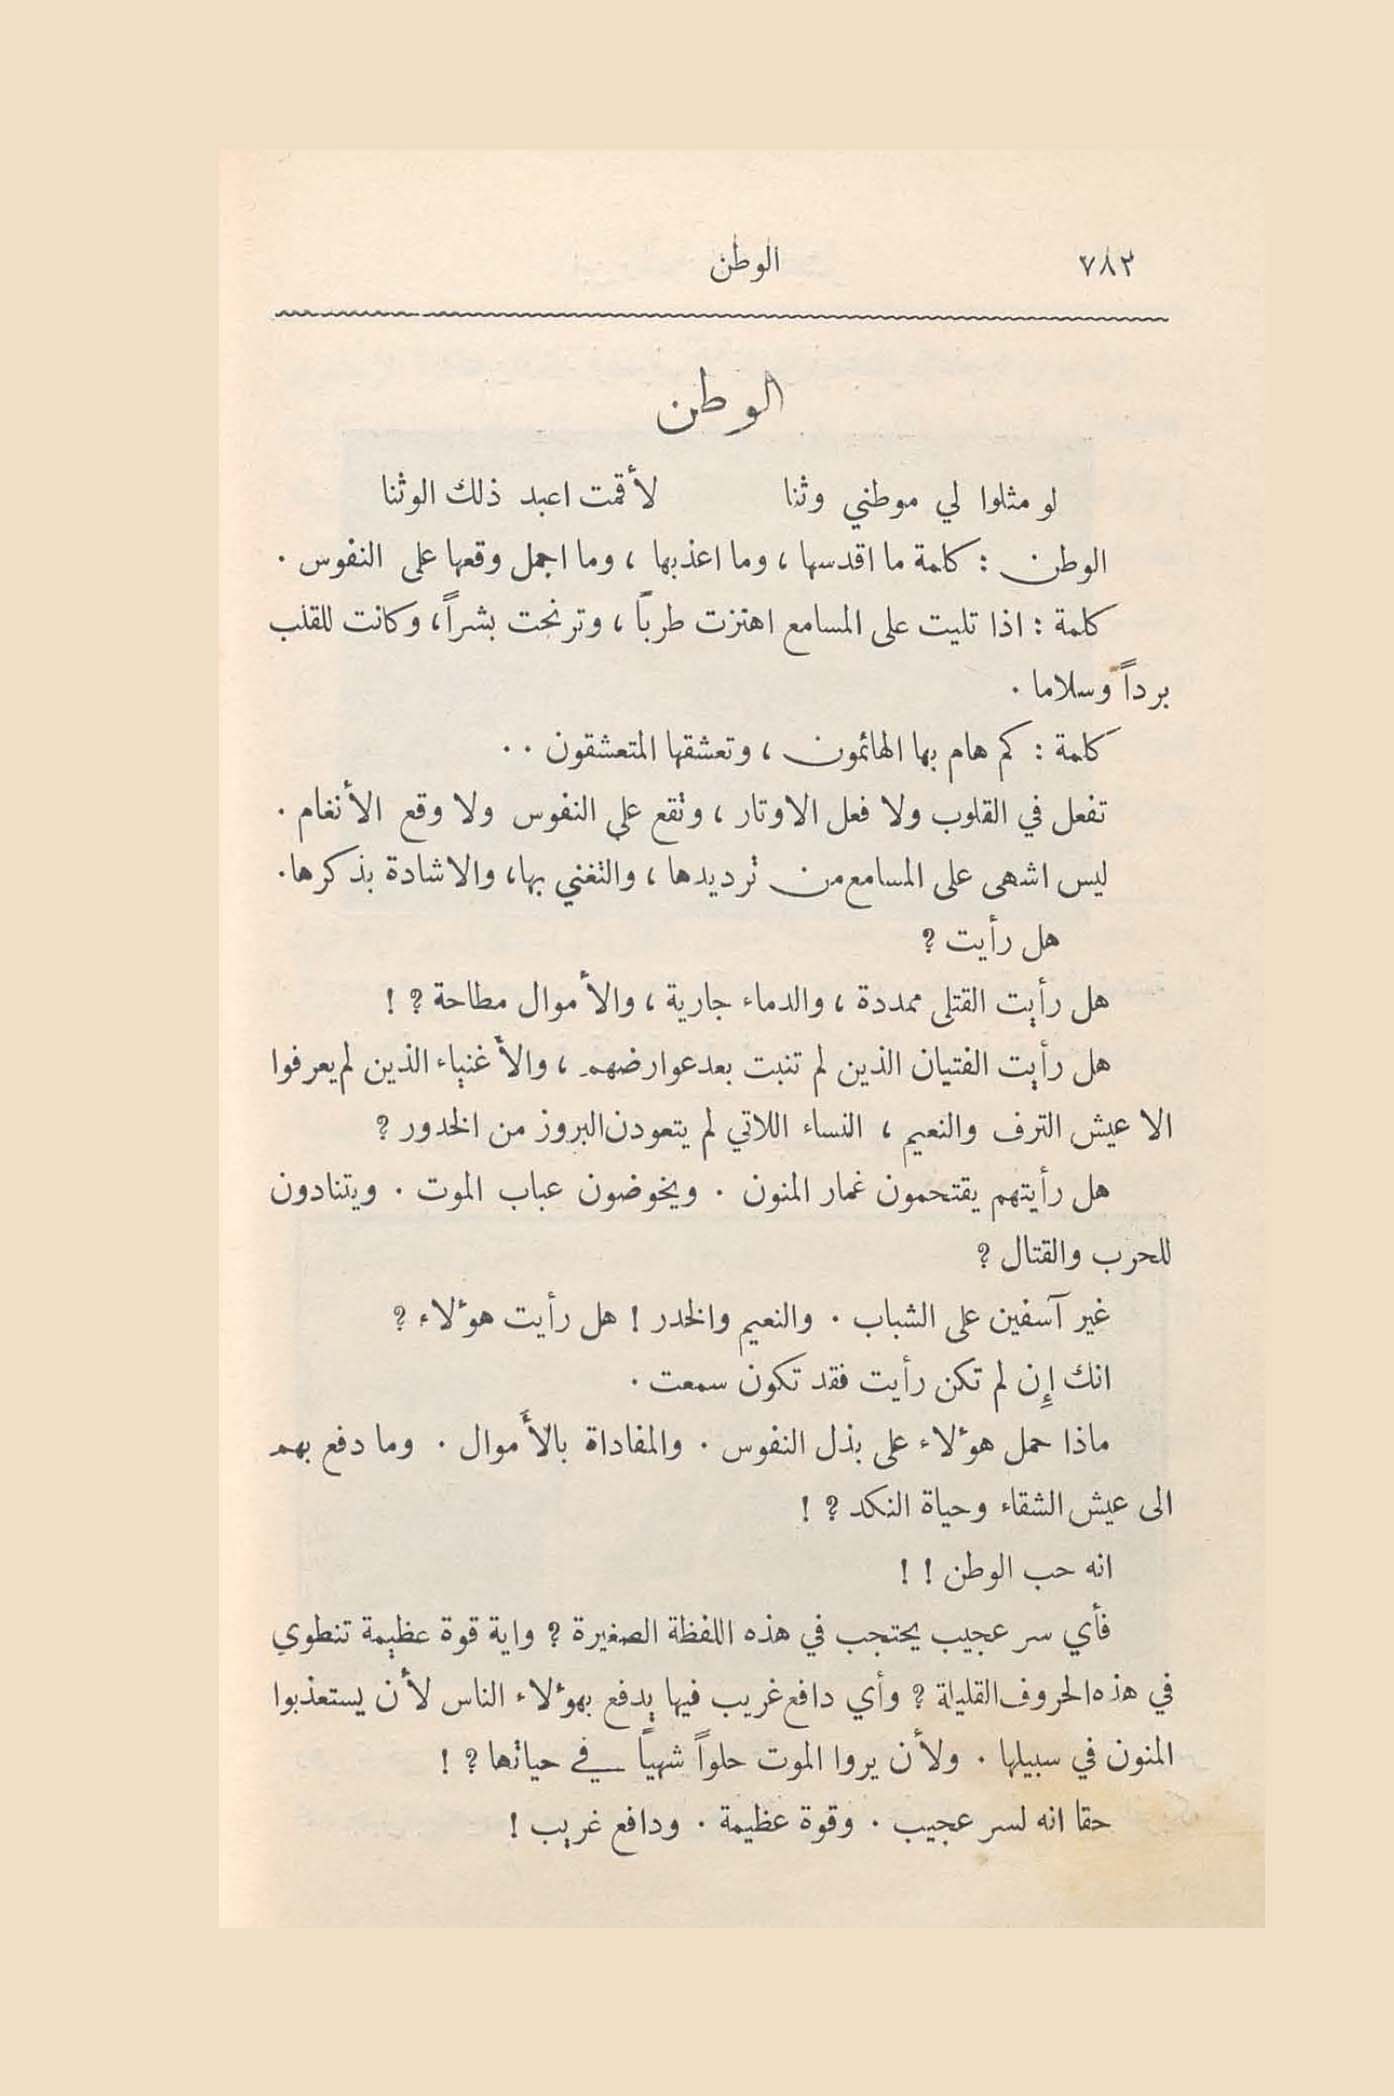 ٧٨٢ الوطن
الوطن
لو مثلوا لي موطني وثنا لأقمت اعبد ذلك الوثنا
الوطن : كلمة ما اقدسها ، وما اعذبها ، وما اجمل وقعها على النفوس .
كلمة : اذا تليت على المسامع اهتزت طرباً ، وترنحت بشراً ، وكانت للقلب
برداً وسلاما .
كلمة : كم هام بها الهائمون ، وتعشقها المتعشقون . .
تفعل في القلوب ولا فعل الاوتار ، وتقع على النفوس ولا وقع الأنغام .
ليس اشهى على المسامع من ترديدها ، والتغني بها ، والاشادة بذكرها .
هل رأيت ؟
هل رأيت القتلى ممددة ، والدماء جارية ، والأموال مطاحة ؟ !
هل رأيت الفتيان الذين لم تنبت بعد عوارضهم ، والأغنياء الذين لم يعرفوا
الا عيش الترف والنعيم ، النساء اللاتي لم يتعودن البروز من الخدور ؟
هل رأيتهم يقتحمون غمار المنون . ويخوضون عباب الموت . ويتنادون
للحرب والقتال ؟
غير آسفين على الشباب . والنعيم والخدر ! هل رأيت هؤلاء ؟
انك إن لم تكن رأيت فقد تكون سمعت .
ماذا حمل هؤلاء على بذل النفوس . والمفاداة بالأموال . وما دفع بهم
الى عيش الشقاء وحياة النكد ؟ !
انه حب الوطن ! !
فأي سر عجيب يحتجب في هذه اللفظة الصغيرة ؟ واية قوة عظيمة تنطوي
في هذه الحروف القليلة ؟ وأي دافع غريب فيها يدفع بهؤلاء الناس لأن يستعذبوا
المنون في سبيلها . ولأن يروا الموت حلواً شهياً في حياتها ؟ !
حقا انه لسر عجيب . وقوة عظيمة . ودافع غريب !